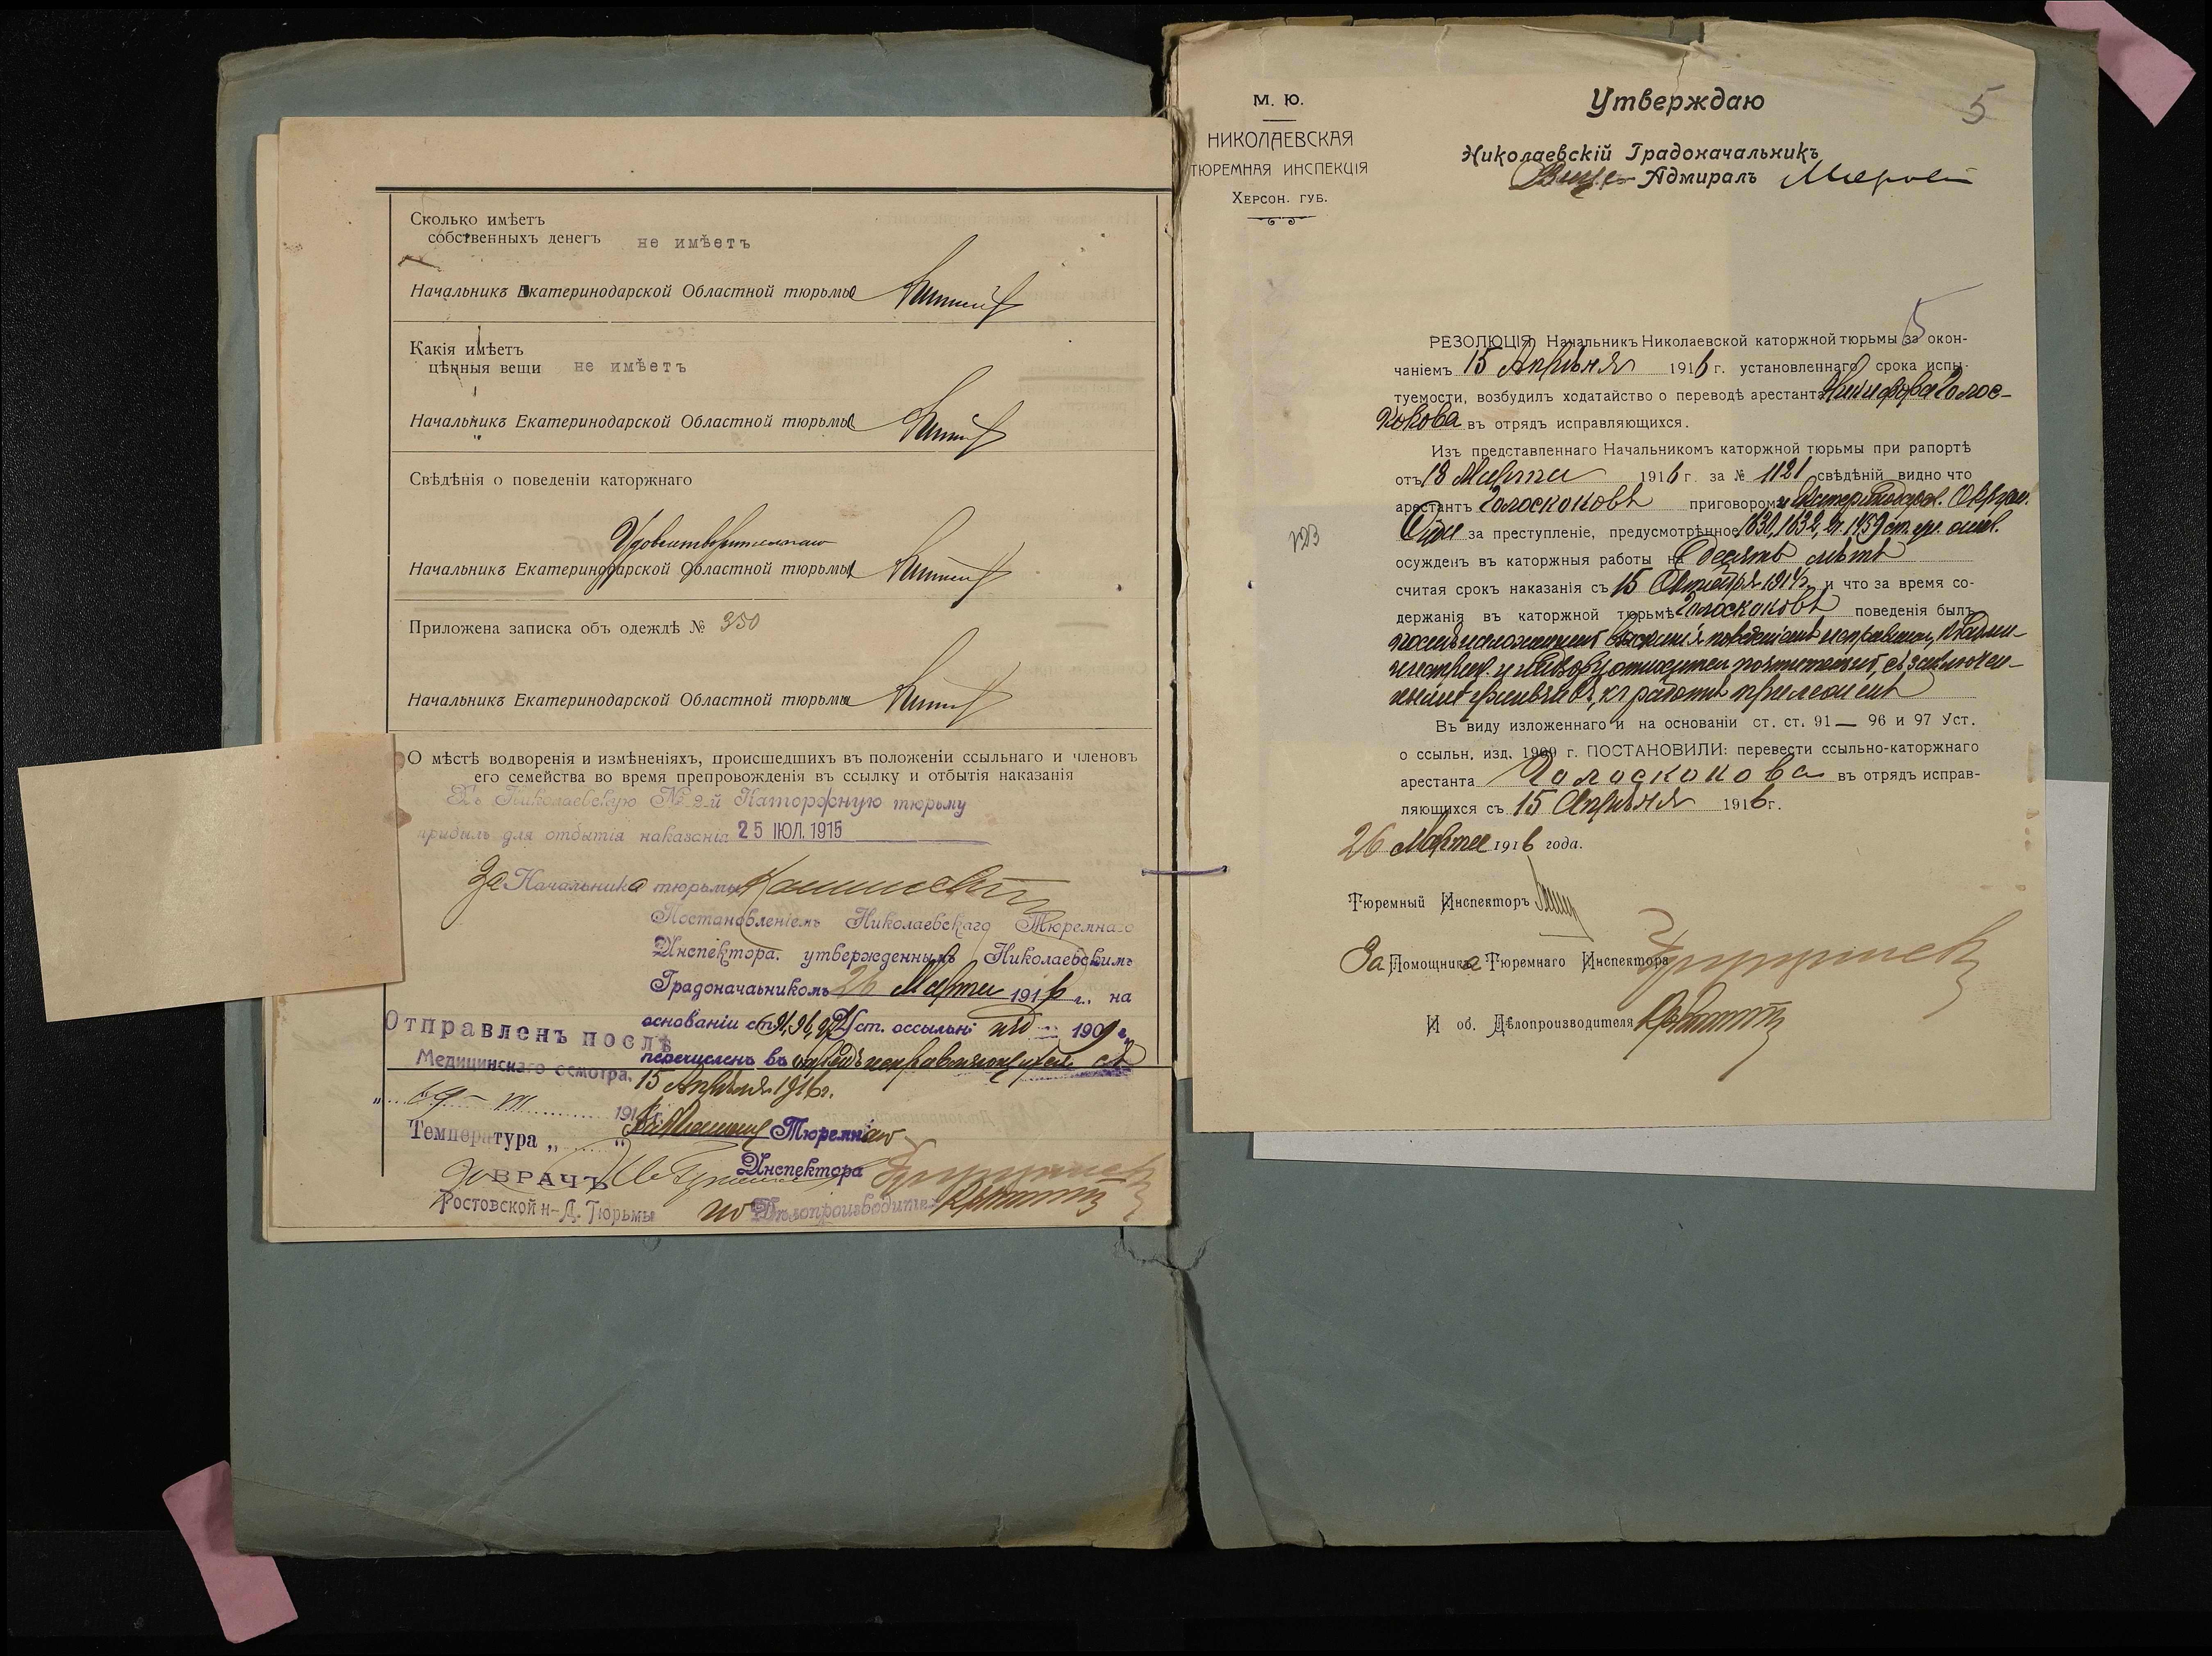 Сколько имѣетъ
собственныхъ денегъ не имѣетъ
Начальникъ Екатеринодарской Областной тюрьмы
Какія имѣетъ
цѣнныя вещи не имѣетъ
Начальникъ Екатеринодарской Областной тюрьмы
Свѣдѣнія о поведеніи каторжнаго
Удовлетворительнаго
Начальникъ Екатеринодарской Областной тюрьмы
Приложена записка объ одеждѣ № 350
Начальникъ Екатеринодарской Областной тюрьмы
О мѣстѣ водворенія и измѣненіяхъ, происшедшихъ въ положеніи ссыльнаго и членовъ
его семейства во время препровожденія въ ссылку и отбытія наказанія
Въ Николаевскую № 2-й Каторжную тюрьму
прибылъ для отбытія наказанія 25 ІЮЛ. 1915
За Начальника тюрьмы
Постановленіемъ Николаевскаго Тюремнаго
Инспектора, утвержденнымъ Николаевскимъ
Градоначальникомъ 26 Марта 1916 г., на
основаніи ст. 91, 96, 97 Уст. о ссыльн. изд. 1909 г.
перечисленъ въ отрядъ исправляющихся съ
15 Апрѣля 1916 г.
Отправленъ послѣ
Медицинскаго осмотра.
191
Температура „ “
ВРАЧЪ
Ростовской н-Д. Тюрьмы
За Помощн. Тюремнаго
Инспектора
И о Дѣлопроизводителя
М. Ю.
НИКОЛАЕВСКАЯ
ТЮРЕМНАЯ ИНСПЕКЦІЯ
ХЕРСОН. ГУБ.
5
Утверждаю
Николаевскій Градоначальникъ
Вице-Адмиралъ
5
РЕЗОЛЮЦІЯ. Начальникъ Николаевской каторжной тюрьмы за окон-
чаніемъ 15 Апрѣля 1916 г. установленнаго срока испы-
туемости, возбудилъ ходатайство о переводѣ арестанта Никифора Голос-
кокова въ отрядъ исправляющихся.
Изъ представленнаго Начальникомъ каторжной тюрьмы при рапортѣ
отъ 18 Марта 1916 г. за № 1121 свѣдѣній видно что
арестантъ Голоскоковъ приговоромъ Екатеринодар. Окруж.
Суда за преступленіе, предусмотрѣнное 1630, 1632, 2 ч. 1459 ст. улож.
осужденъ въ каторжныя работы на десять лѣтъ
считая срокъ наказанія съ 15 Октября 1914 г. и что за время со-
держанія въ каторжной тюрьмѣ Голоскоковъ поведенія былъ
поведеніемъ исправенъ, къ адми-
нистрац. и надзору относится почтительно, съ заключен-
ными уживчивъ, къ работѣ прилеженъ
Въ виду изложеннаго и на основаніи ст. ст. 91 — 96 и 97 Уст.
о ссыльн. изд. 1909 г. ПОСТАНОВИЛИ: перевести ссыльно-каторжнаго
арестанта Голоскокова въ отрядъ исправ-
ляющихся съ 15 Апрѣля 1916 г.
26 Марта 1916 года.
Тюремный Инспекторъ
За Помощника Тюремнаго Инспектора
И об. Дѣлопроизводителя